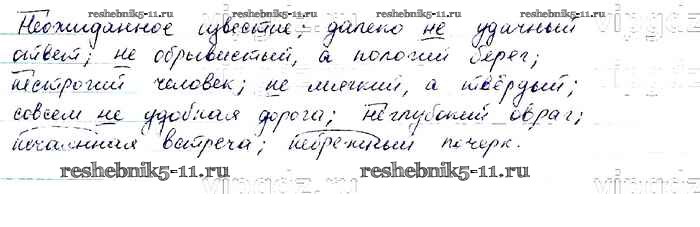 reshebnik5-11.ru reshebnik5-11.ru
Неожиданное известие; далеко не удачный
ответ; не обрывистый, а пологий берег;
нестрогий человек; не мягкий, а твёрдый;
совсем не удобная дорога; неглубокий овраг;
нечаянная встреча; небрежный почерк.
reshebnik5-11.ru reshebnik5-11.ru